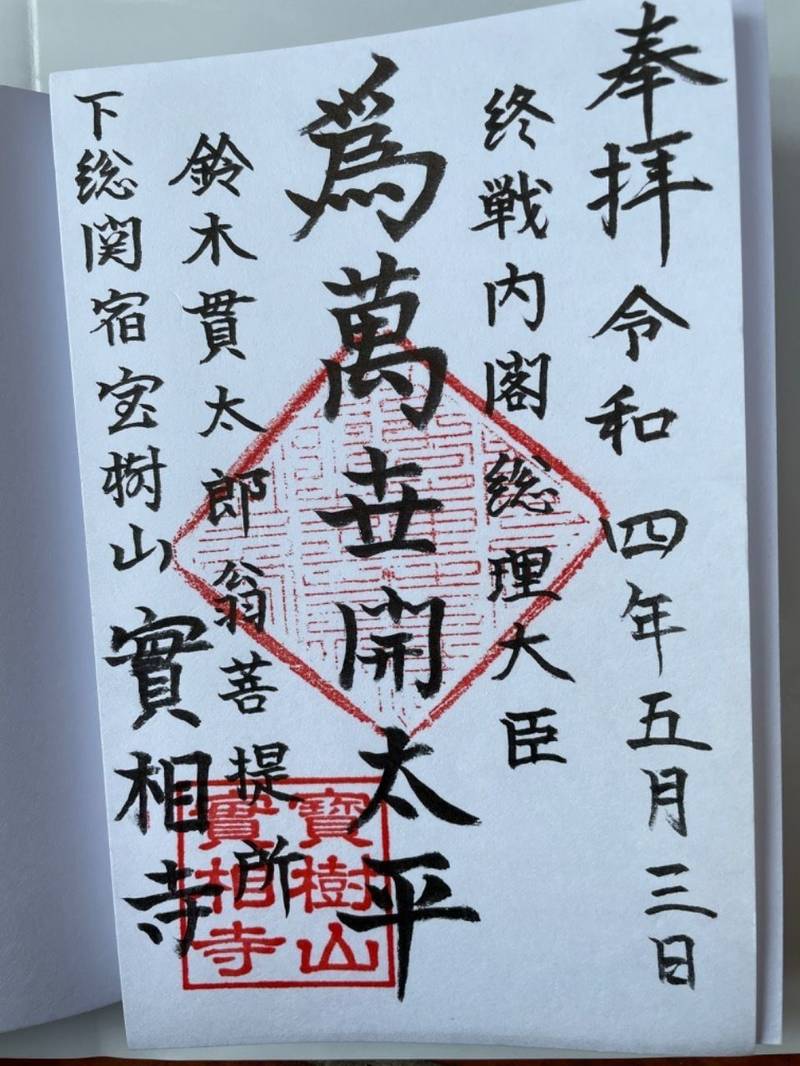 奉拝 令和四年五月三日
終戦内閣総理大臣
為萬世開太平
鈴木貫太郎翁菩提所
下総関宿宝樹山實相寺
寶樹山
實相寺